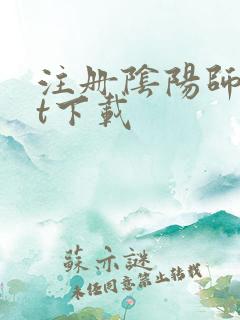 注册陰陽師
t下載
蘇亦謎
未经同意禁止转载